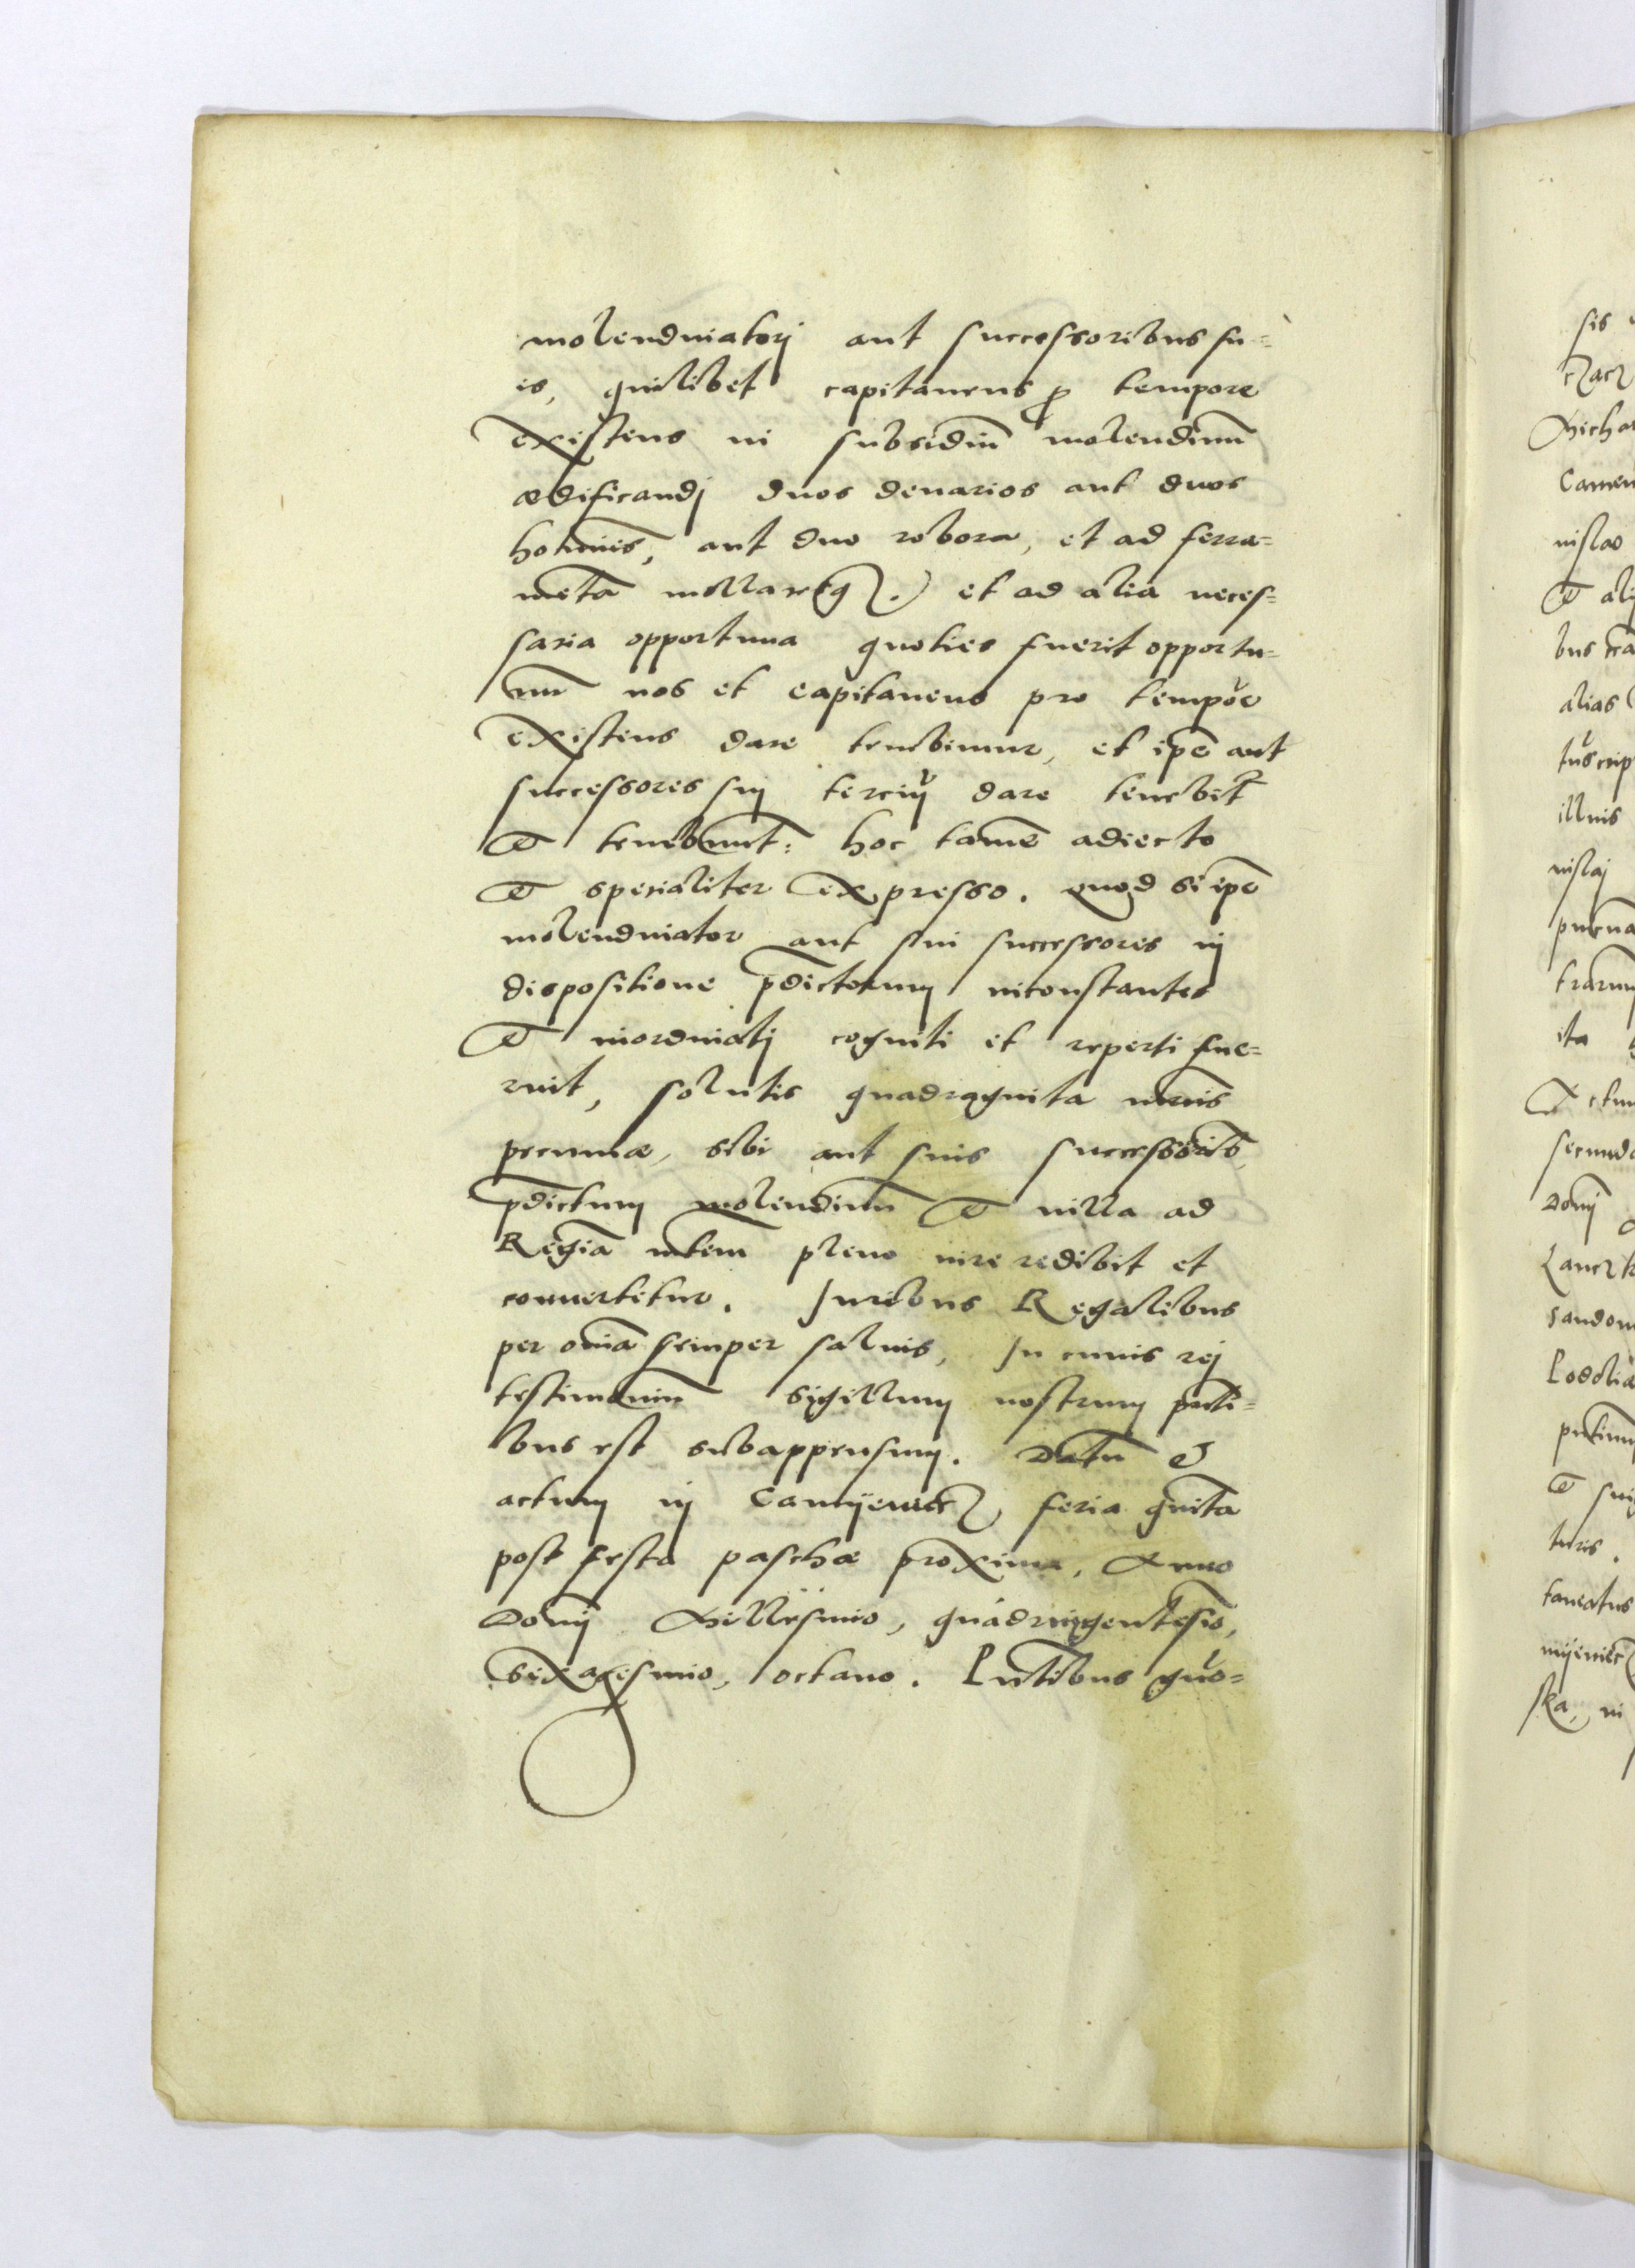 molendinatorj aut successoribus su=
is, quilibet capitaneus p tempore
existens in subsidiū molendinū
ædificandj duos denarios aut duos
hoīnes, aut duo robora, et ad ferra=
mēta et ad alia neces=
saria opportuna quoties fuerit opportu=
nū nos et capitaneus pro tempore
existens dare tenebimur, et ipē aut
successores sui terciū dare tenebit̄
et tenebunt: hoc tamē adiecto
et specialiter expresso. quod si ipē
molendinator aut sui successores in
dispositione p̄dictorum inconstantes
et inordinatj cogniti et reperti fue=
rint, solutis quadraginta m̄cis
pecuniæ, sibi aut suis successorib,
p̄dictum molendinū et uilla ad
Regiā mtem̄ pleno iure redibit et
conuertetur. Juribus Regalibus
per om̄ia semper saluis, In cuius rej
testimoniū sigillum nostrum pn̄ti=
bus est subappensum. Datū &
actum in Camÿenecz feria quīta
post festa paschæ proxima, Anno
Domī Millesimo, quadringentesīo,
sexagesimo, octauo. Pn̄tibus quo=
sis
czacz
Micha
Camen
nislao
et alij
bus
alias
illius
nislaj
ita
Actum
secunda
Domī
Lancz
Sandom
Podolia
et
turis.
ska, in